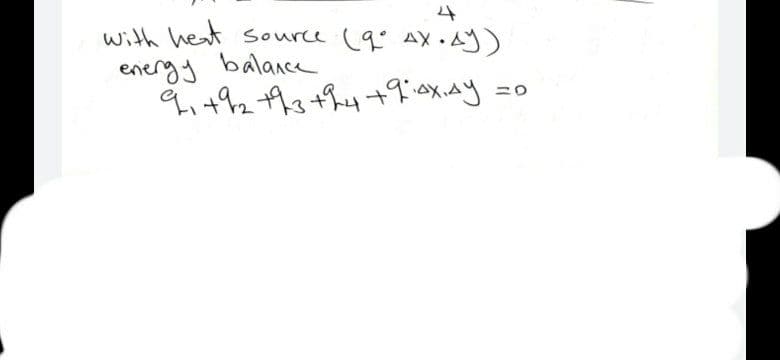 4
with heat source (q° Δx·Δy)
energy balance
q₁+q₂+q₃+q₄+q°·Δx·Δy =0